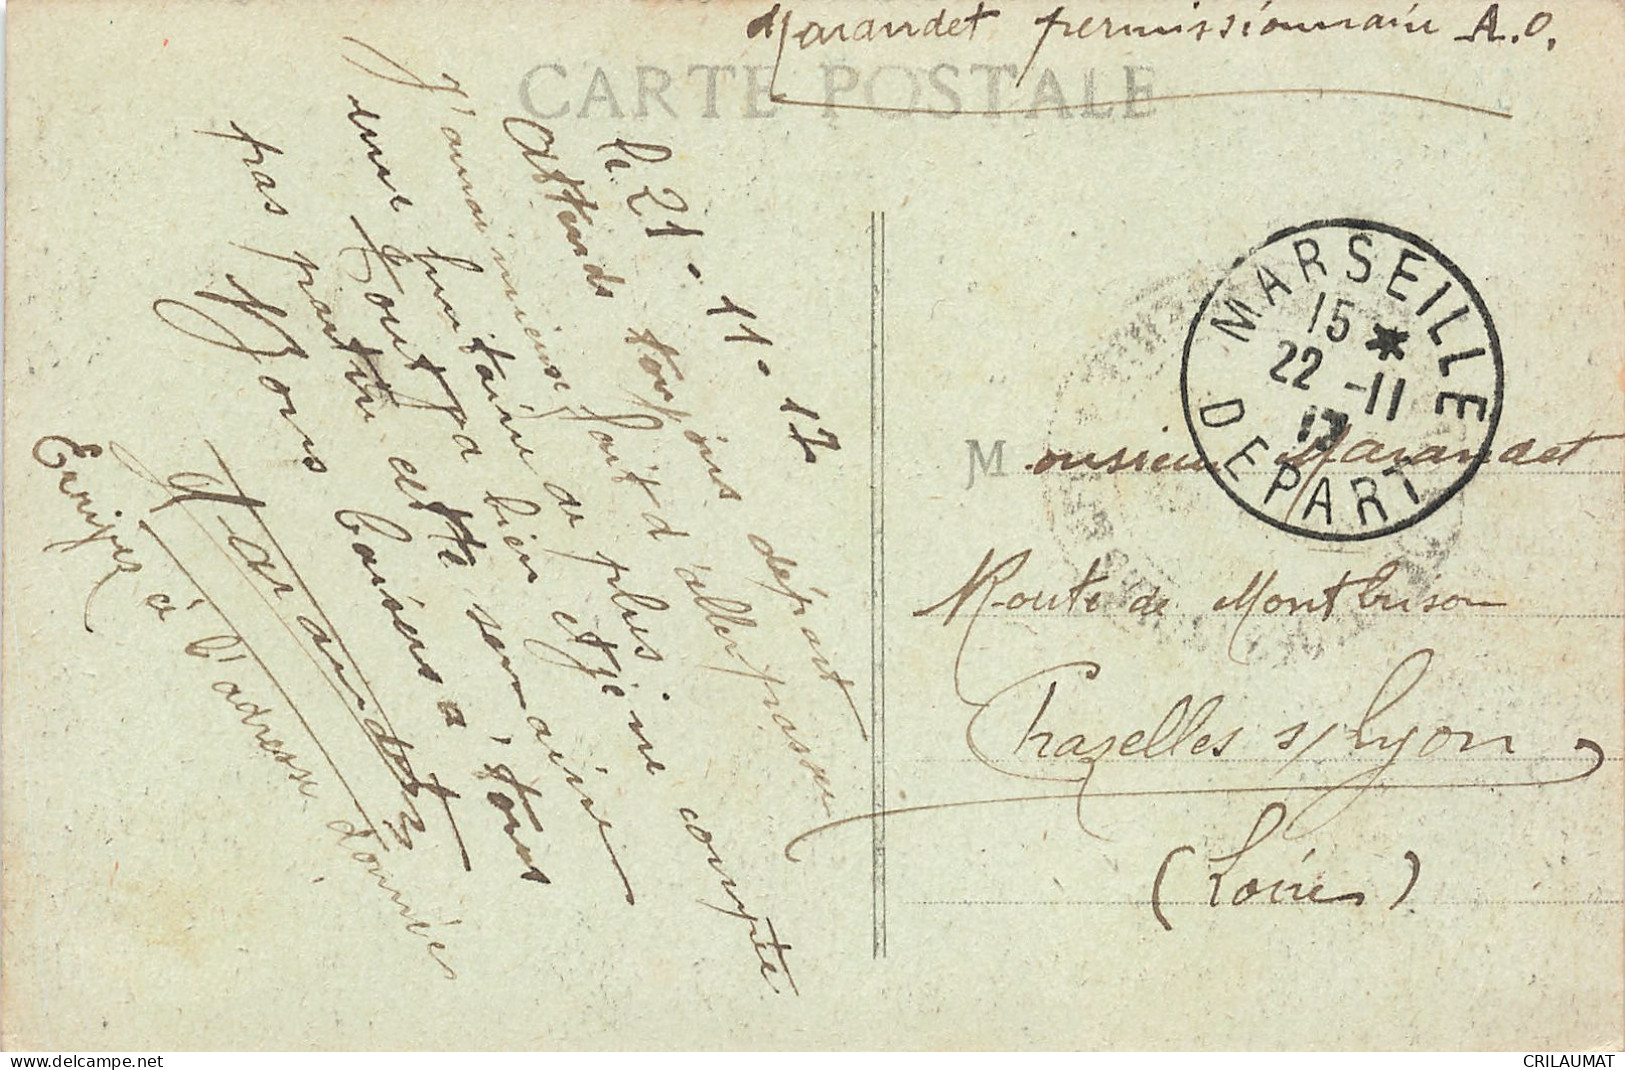 Marandet permissionnaire A.O.
CARTE POSTALE
le 21.11.17
Attends toujours départ
J'aurai mieux fait d'aller passer
une huitaine de plus
tout va bien et je ne compte
pas partir cette semaine
Bons baisers à tous
Marandet
Ecrivez à l'adresse donnée
MARSEILLE
15 *
22 -11
17
DEPART
Monsieur Marandet
Route de Montbrison
Chazelles s/ Lyon
(Loire)
delcampe.net
CRILAUMAT